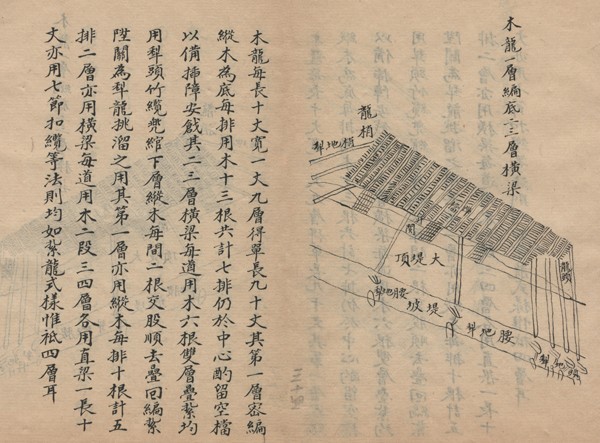 木龍一層編底二三層橫梁
龍梢
梢地犁
大堤頂
龍頭
腰地犁
堤坡
腰地犁
木龍每長十丈寬一丈九層得單長九十丈其第一層密編
縱木為底每排用木十三根共計七排仍於中心酌留空檔
以備插障安戧其二三層橫梁每道用木六根雙層疊紮均
用犁頭竹纜兜綰下層縱木每間二根交股順去疊回編紮
陞關為犁龍挑溜之用其第一層亦用縱木每排十根計五
排二層亦用橫梁每道用木二段三四層各用直梁一長十
丈亦用七節扣纜等法則均如紮龍式樣惟祗四層耳